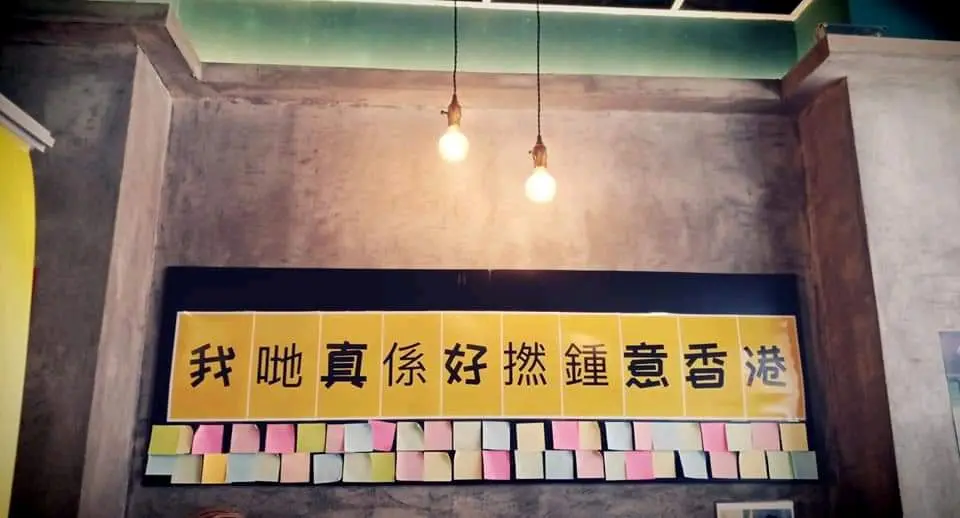 我哋真係好撚鍾意香港